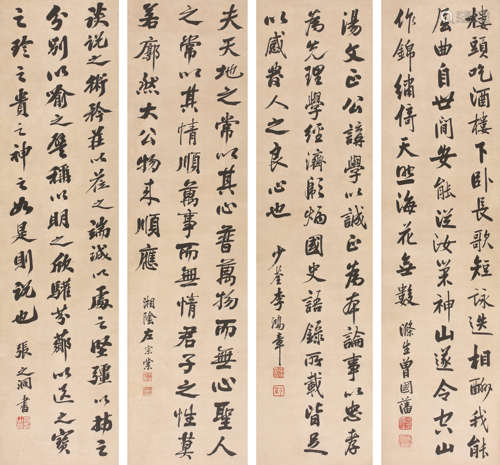 樓頭吃酒樓下卧長歌短詠迭相酬我能
屈曲自世間安能從汝巢神山遂令空山
作錦繡倚天照海花無數 滌生曾國藩
湯文正公講學以誠正為本論事以忠孝
為先理學經濟彪炳國史語錄所載皆足
以感發人之良心也 少荃李鴻章
夫天地之常以其心普萬物而無心聖人
之常以其情順萬事而無情君子之性莫
若廓然大公物來順應 湘陰左宗棠
談說之術矜莊以蒞之端誠以處之堅彊以持之
分別以喻之譬稱以明之欣驩芬薌以送之寶
之珍之貴之神之如是則說也 張之洞書